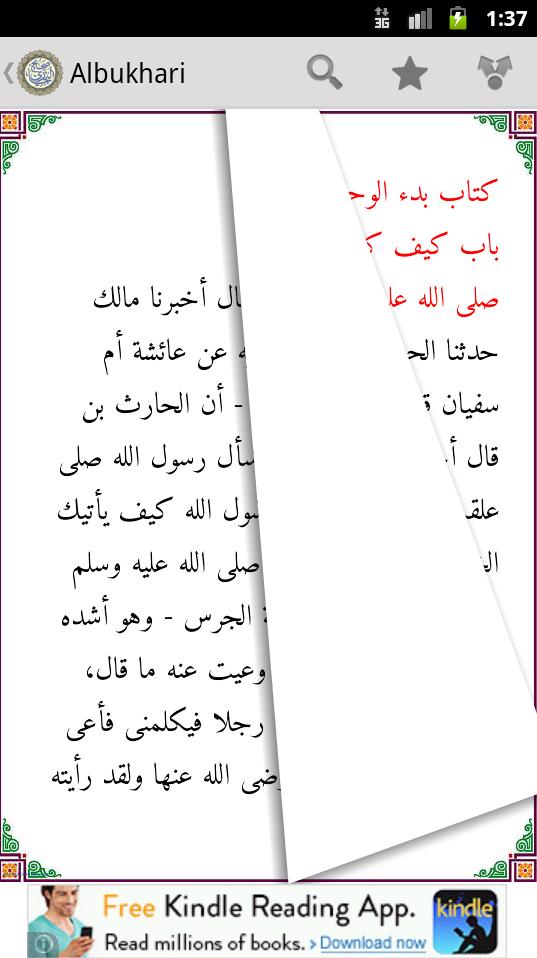 3G
1:37
Albukhari
كتاب بدء الوح
باب كيف ك
صلى الله عل
ال أخبرنا مالك
حدثنا الح
ه عن عائشة أم
سفيان ق
- أن الحارث بن
قال أ
سأل رسول الله صلى
علق
سول الله كيف يأتيك
صلى الله عليه وسلم
ة الجرس - وهو أشده
وعيت عنه ما قال،
رجلا فيكلمنى فأعى
ضى الله عنها ولقد رأيته
Free Kindle Reading App.
Read millions of books. > Download now
kindle